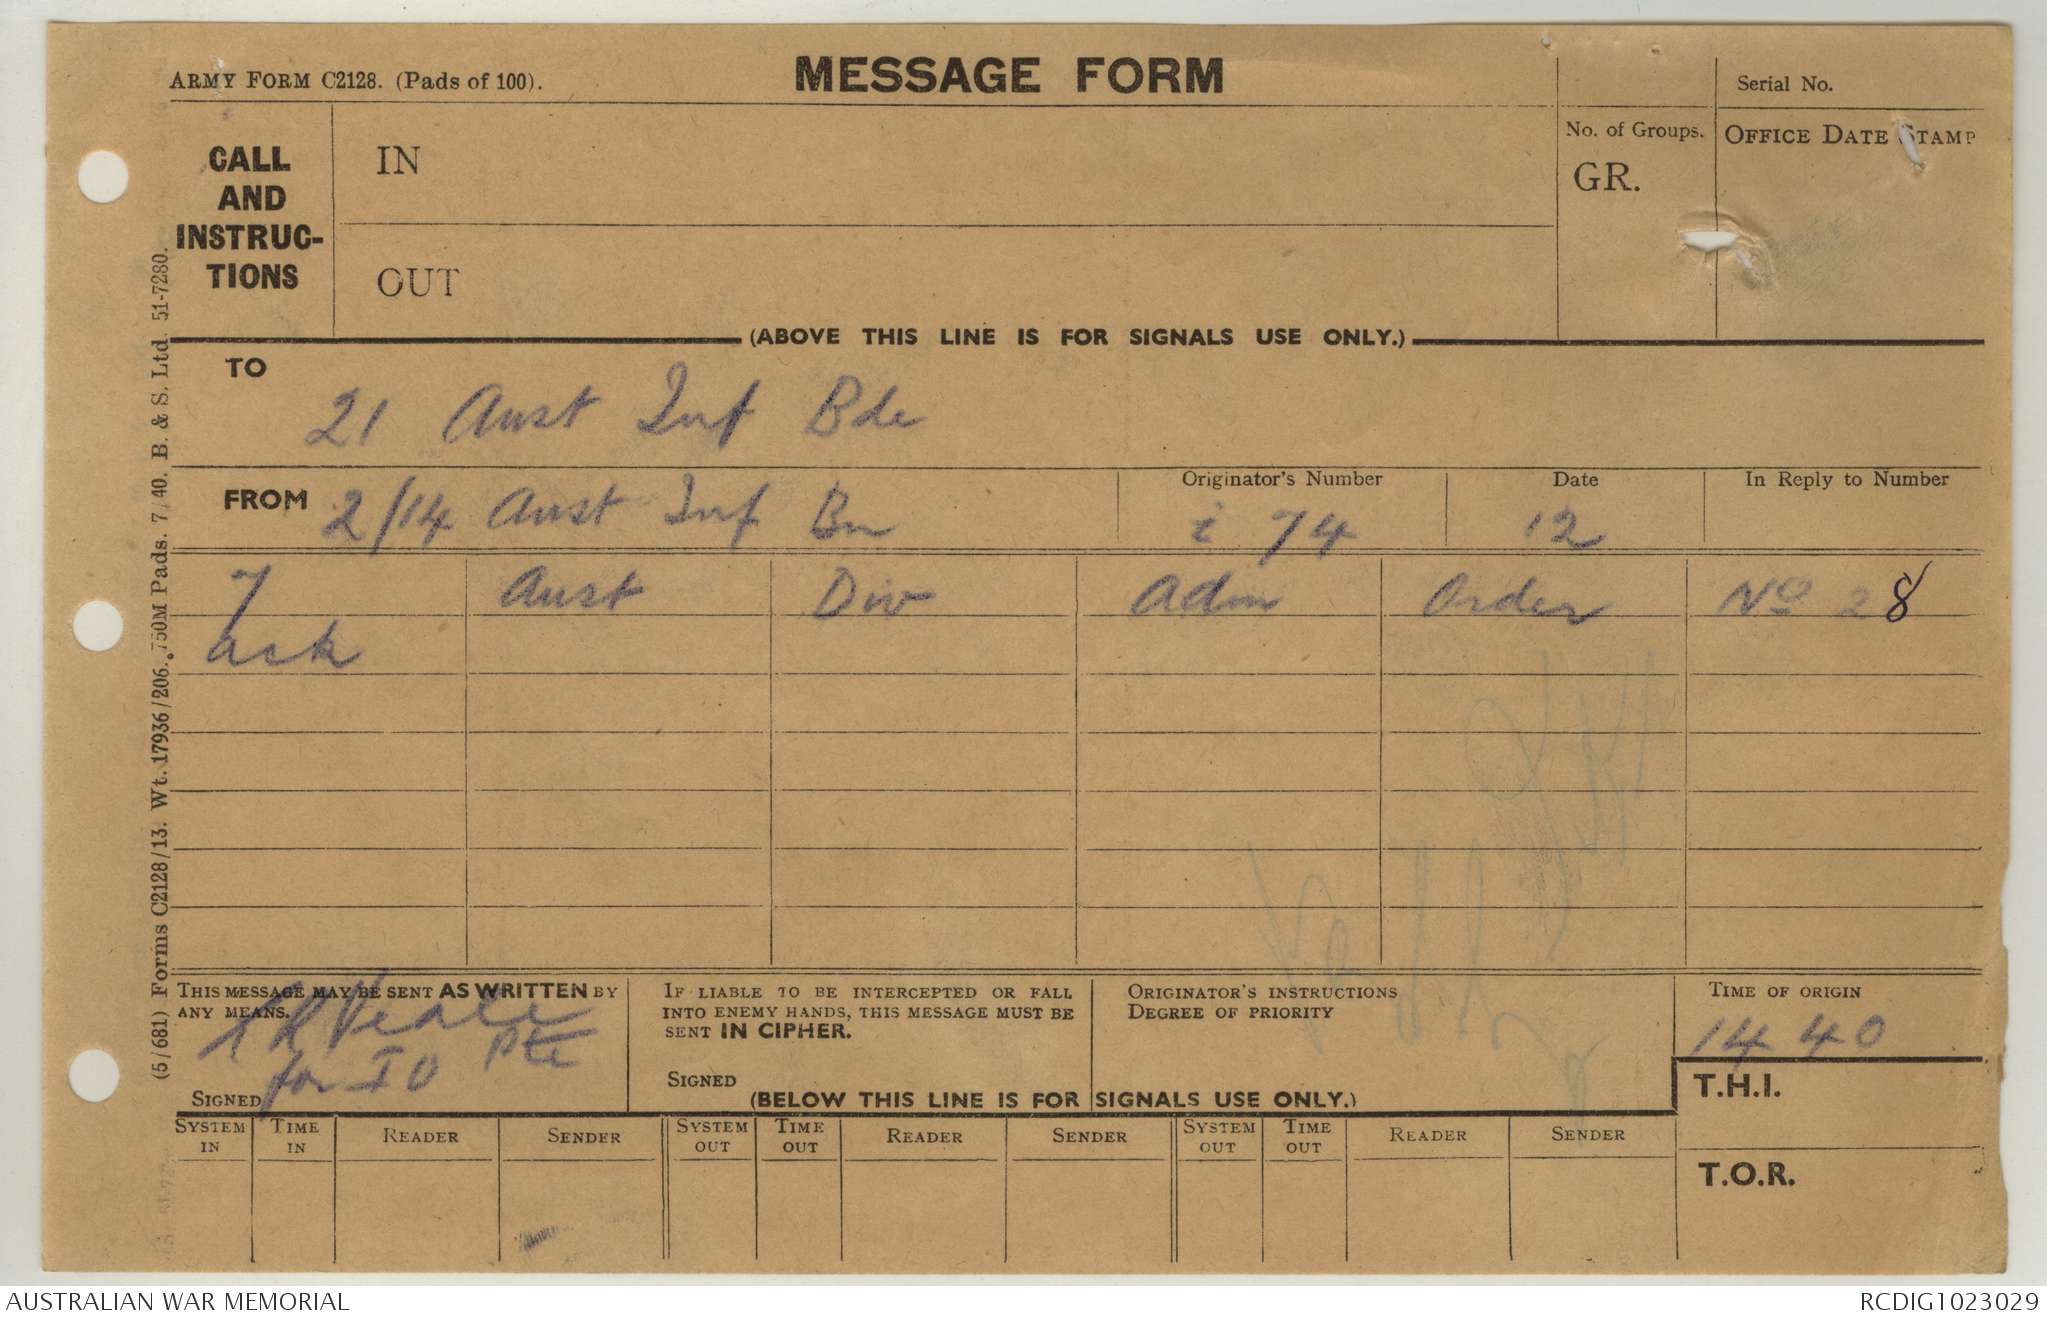 ARMY FORM C2128. (Pads of 100).
MESSAGE FORM
Serial No.
CALL AND INSTRUC-TIONS
IN
OUT
No. of Groups.
GR.
OFFICE DATE STAMP
(ABOVE THIS LINE IS FOR SIGNALS USE ONLY.)
TO
21 Aust Inf Bde
FROM 2/14 Aust Inf Bn
Originator's Number
i 74
Date
12
In Reply to Number
7 Aust Div Adm Order No 28
ack
THIS MESSAGE MAY BE SENT AS WRITTEN BY
ANY MEANS.
for IO Pte
SIGNED
IF LIABLE TO BE INTERCEPTED OR FALL
INTO ENEMY HANDS, THIS MESSAGE MUST BE
SENT IN CIPHER.
SIGNED
ORIGINATOR'S INSTRUCTIONS
DEGREE OF PRIORITY
TIME OF ORIGIN
1440
T.H.I.
T.O.R.
(BELOW THIS LINE IS FOR SIGNALS USE ONLY.)
SYSTEM IN TIME IN READER SENDER SYSTEM OUT TIME OUT READER SENDER SYSTEM OUT TIME OUT READER SENDER
(5/681) Forms C2128/13. Wt. 17936/206. 750M Pads. 7/40. B. & S. Ltd. 51-7280.
AUSTRALIAN WAR MEMORIAL
RCDIG1023029